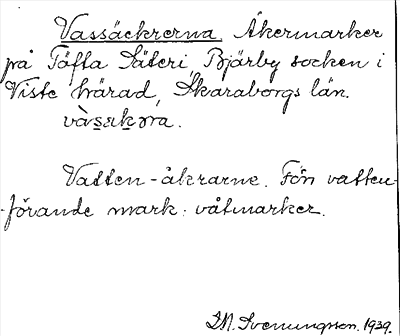 Vassäckrerna Åkermarker
på Töffta Säteri Bjärby socken i
Viste härad, Skaraborgs län.
vàsakrra.
Vatten-åkrarne. Från vatten-
förande mark: våtmarker.
J.M. Svenungsson. 1939.